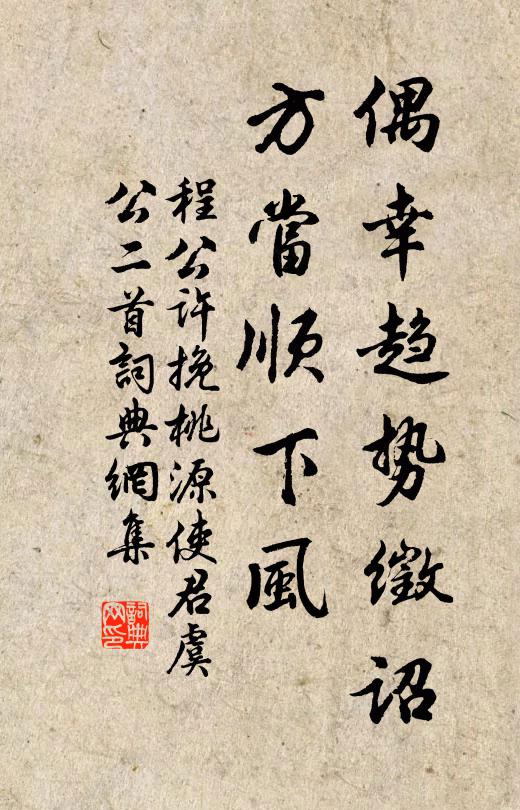 偶幸趋势徵詔
方當順下風
程公许挽桃源使君虞
公二首詞典網集
詞典
网印